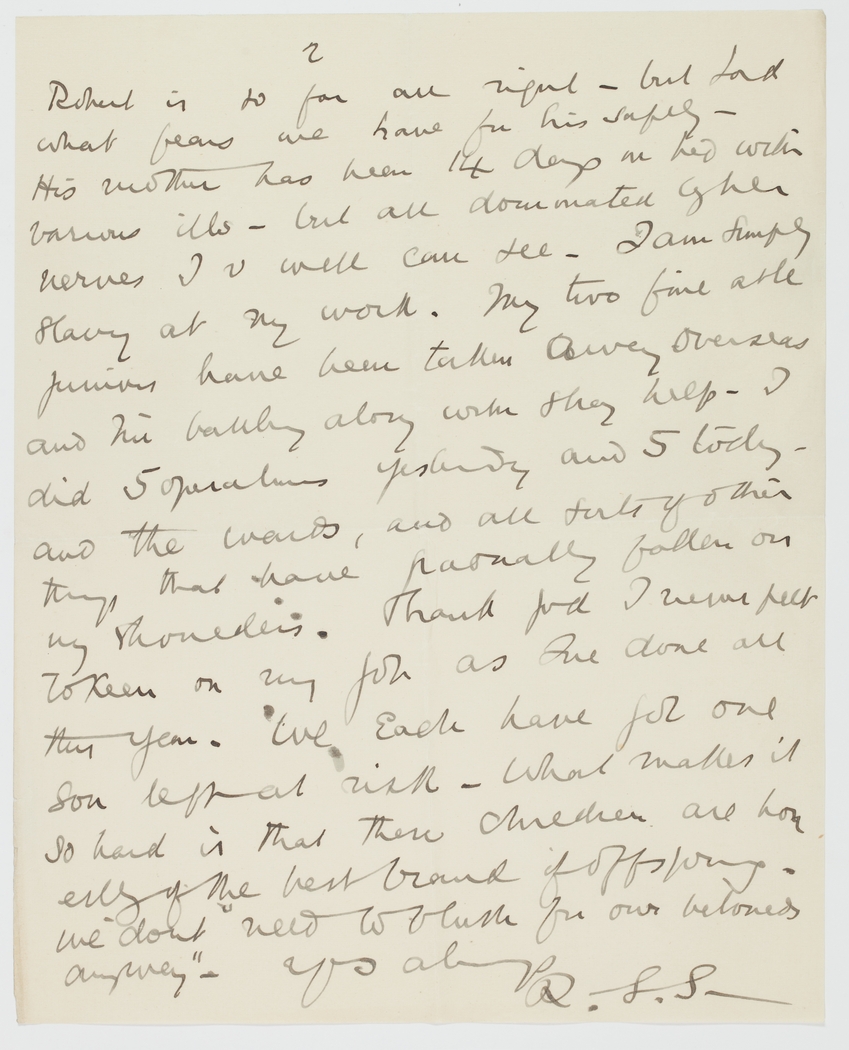 2
Robert is so far all right – but Lord
what fears we have for his safety –
His mother has been 14 days in bed with
various ills – but all dominated by her
nerves I v well can see – I am simply
slaving at my work. My two fine able
juniors have been taken away overseas
and I'm battling along with help – I
did 5 operations yesterday and 5 today –
and the wards, and all sorts of other
things that have gradually fallen on
my shoulders. Thank God I never felt
so keen on my job as I've done all
this year. We Each have got one
son left at risk – What makes it
so hard is that these children are hon
estly of the best brand of offspring –
we "don't need to blush for our beloveds
anyway" – Yrs always
R. S. S. –